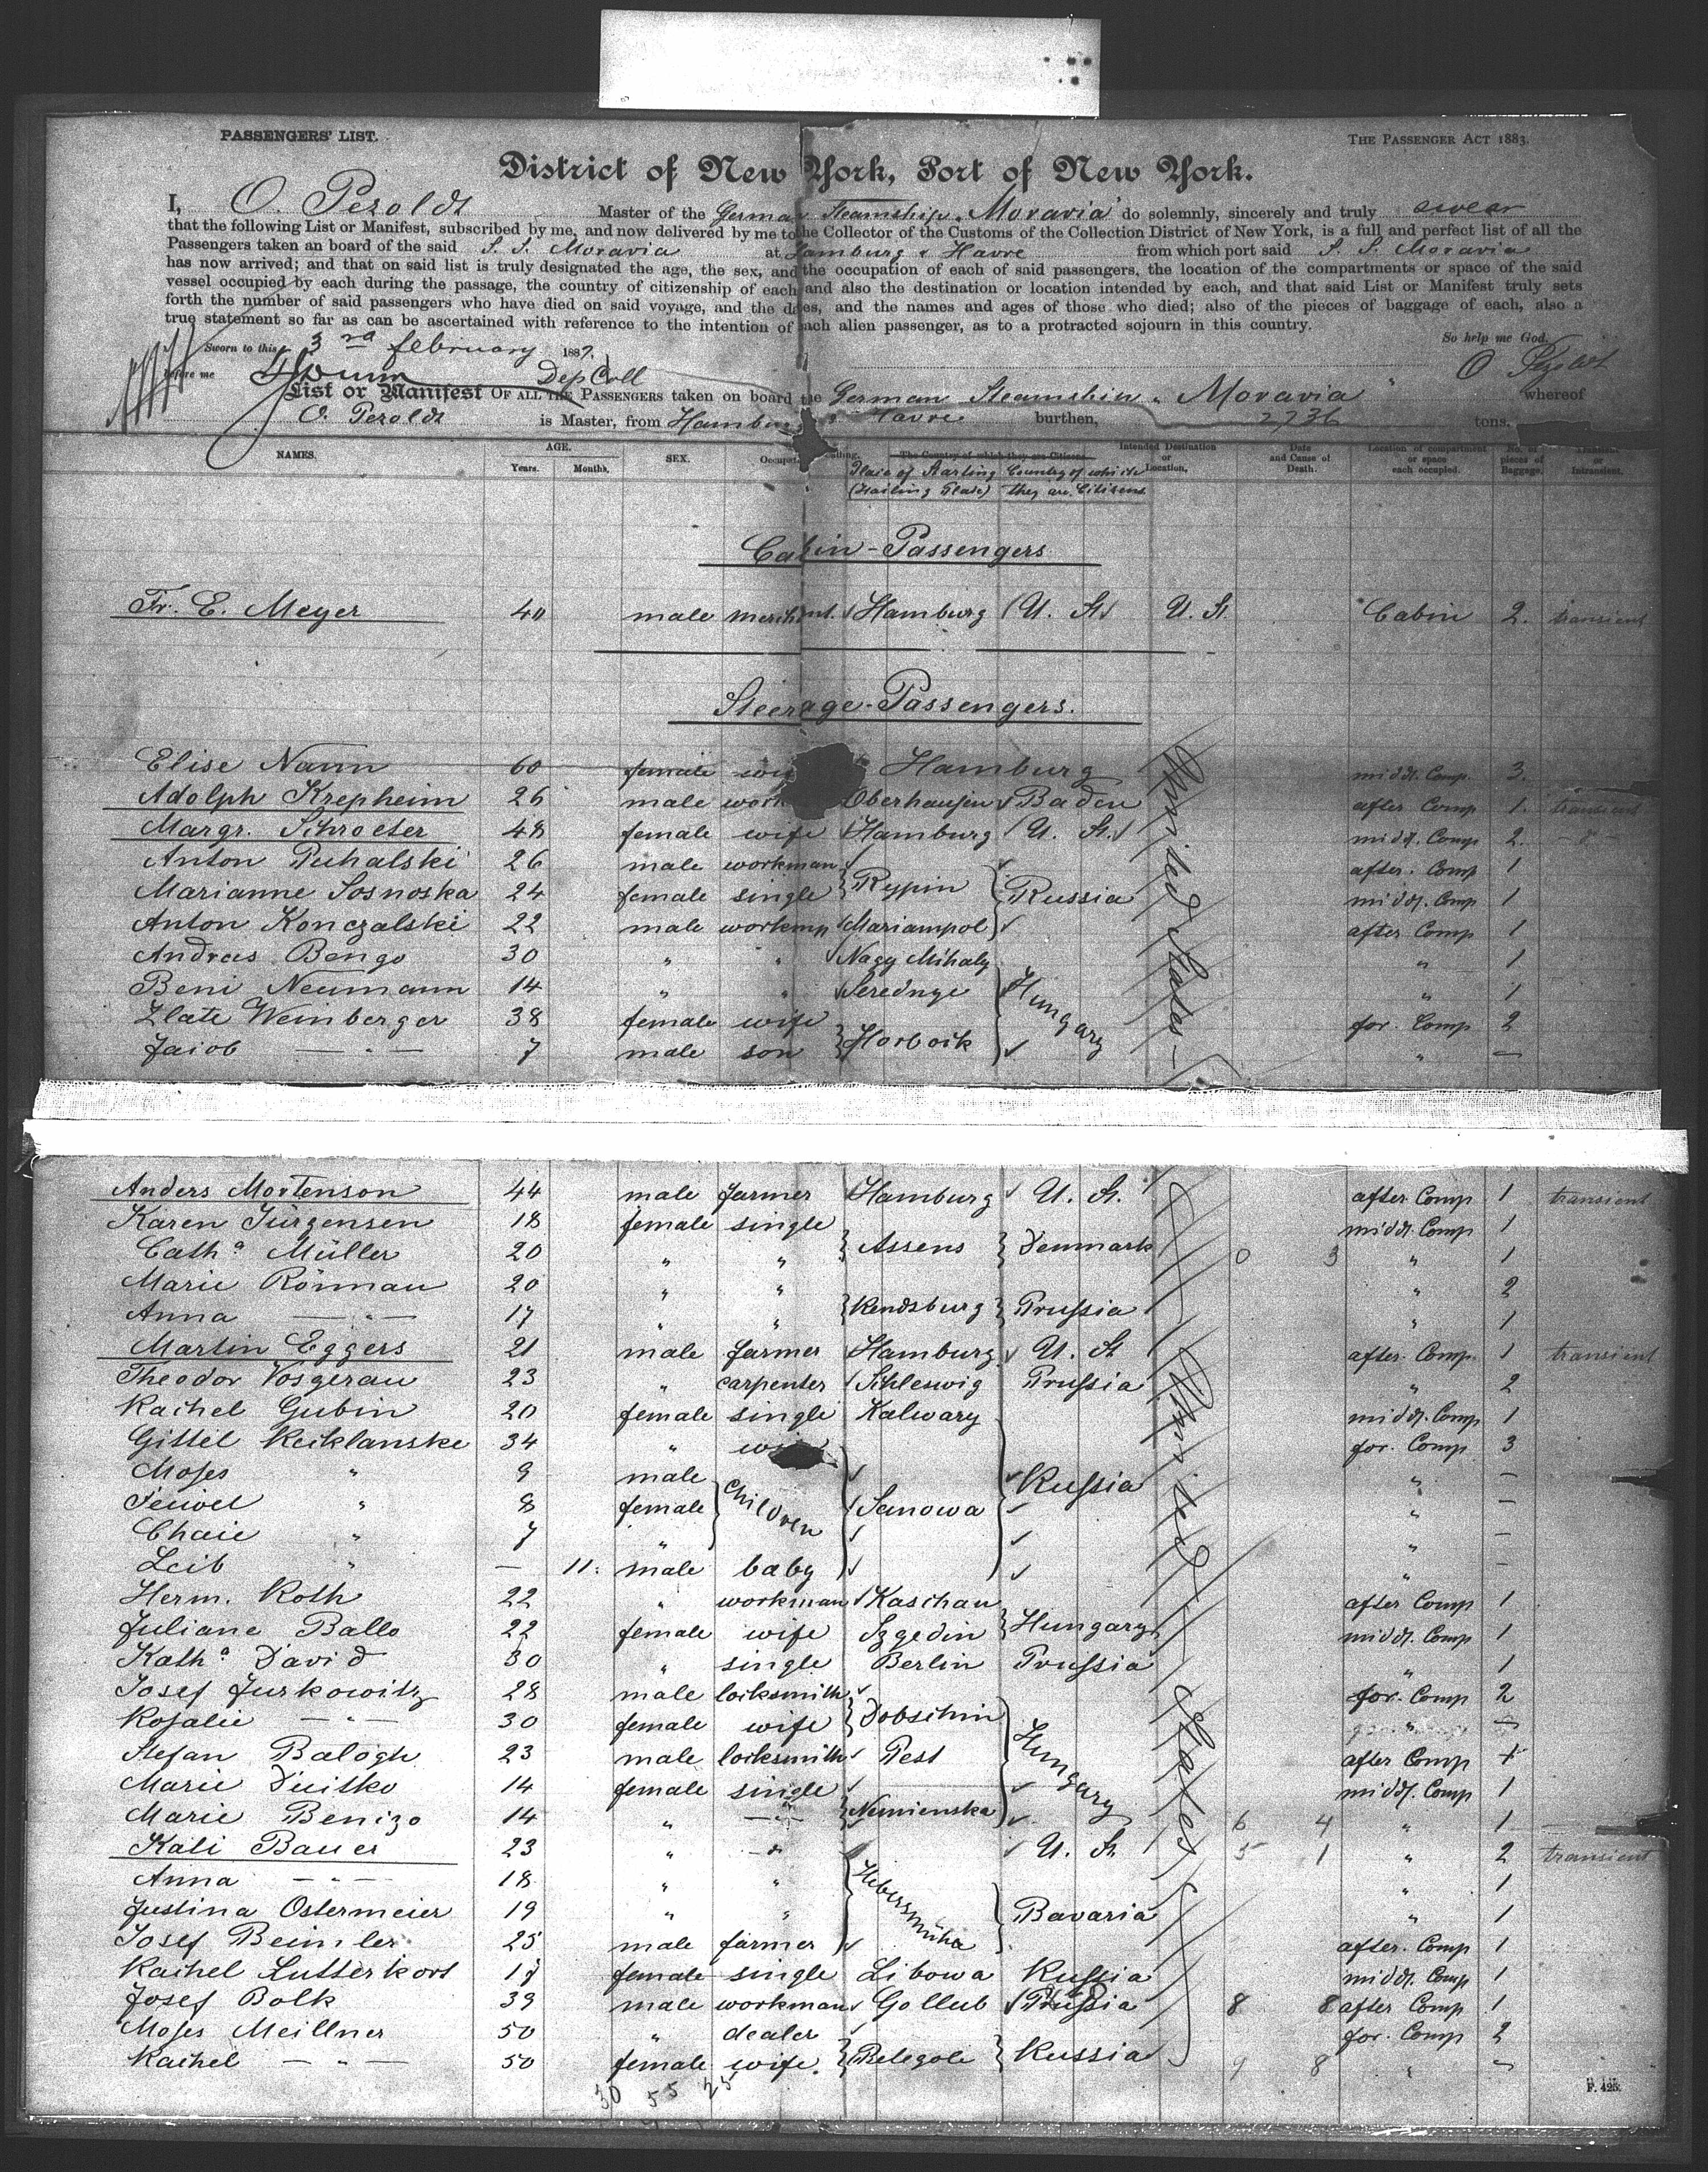 PASSENGERS' LIST.
THE PASSENGER ACT 1883.
District of New York, Port of New York.
I, O. Pezoldt Master of the German Steamship "Moravia" do solemnly, sincerely and truly swear
that the following List or Manifest, subscribed by me, and now delivered by me to the Collector of the Customs of the Collection District of New York, is a full and perfect list of all the
Passengers taken an board of the said S. S. Moravia at Hamburg & Havre from which port said S. S. Moravia
has now arrived; and that on said list is truly designated the age, the sex, and the occupation of each of said passengers, the location of the compartments or space of the said
vessel occupied by each during the passage, the country of citizenship of each and also the destination or location intended by each, and that said List or Manifest truly sets
forth the number of said passengers who have died on said voyage, and the dates, and the names and ages of those who died; also of the pieces of baggage of each, also a
true statement so far as can be ascertained with reference to the intention of each alien passenger, as to a protracted sojourn in this country.
So help me God.
Sworn to this 3rd february 1887.
before me Dep Coll O Pezoldt
List or Manifest OF ALL THE PASSENGERS taken on board the German Steamship "Moravia" whereof
O. Pezoldt is Master, from Hamburg & Havre burthen, 2736 tons.
NAMES. AGE. Years. Months. SEX. Occupation The Country of which they are Citizens. Intended Destination or Location. Date and Cause of Death. Location of compartment or space each occupied. No. of pieces of Baggage. Transient or Intransient.
Place of Starting (Hailing Place) Country of which they are Citizens
Cabin-Passengers
Fr. E. Meyer 40 male merchant. Hamburg U. St. U. St. Cabin 2. transient
Steerage-Passengers.
Elise Nann 60 female Hamburg middl. Comp. 3.
Adolph Krepheim 26 male work Oberhausen Baden after Comp 1. transient
Margr. Schroeter 48 female wife Hamburg U. St. middl. Comp 2.
Anton Puhalski 26 male workman after. Comp 1
Marianne Sosnoska 24 female single Rypin Russia middl. Comp 1
Anton Konczalski 22 male workmn Mariampol after Comp 1
Andreas Bengo 30 " " Nagy Mihaly " 1
Beni Neumann 14 " " Serednye Hungary " 1
Zlate Weinberger 38 female wife for. Comp 2
Jacob — " — 7 male son Horbock " —
United States
Anders Mortenson 44 male farmer Hamburg U. St. after Comp 1 transient
Karen Jürgensen 18 female single middl. Comp 1
Catha Müller 20 " " Assens Denmark 0 3 " 1
Marie Rönnau 20 " " " 2
Anna — " — 17 " " Rendsburg Prussia " 1
Martin Eggers 21 male farmer Hamburg U. St after Comp. 1 transient
Theodor Vosgerau 23 " carpenter Schleswig Prussia " 2
Rachel Gubin 20 female single Kalwary middl. Comp 1
Gittel Reiklanske 34 " for. Comp 3
Moses " 9 male Russia " —
Feiwel " 8 female Children Sanowa " —
Chaie " 7 " " —
Leib " — 11. male baby " —
Herm. Roth 22 " workman Kaschau after Comp 1
Juliane Ballo 22 female wife Szgedin Hungary middl. Comp 1
Katha David 30 " single Berlin Prussia " 1
Josef Jurkowitz 28 male locksmith for. Comp 2
Rosalie — " — 30 female wife Dobschin " —
Stefan Balogh 23 male locksmith Pest Hungary after Comp 1
Marie Duitko 14 female single middl. Comp 1
Marie Benizo 14 " — " — Nemienska 6 4 " 1
Kati Bauer 23 " — " — U. St 5 1 " 2 transient
Anna — " — 18 " " " 1
Justina Ostermeier 19 " " Bavaria " 1
Josef Beimler 25 male farmer after. Comp 1
Rachel Lutterkort female single Libowa Russia middl. Comp 1
Josef Bolk 39 male workman Gollub Prussia 8 8 after Comp 1
Moses Meillner 50 " dealer for. Comp 2
Rachel — " — 50 female wife. Relegole Russia 9 8 " —
United States
30 55 25
F. 425.